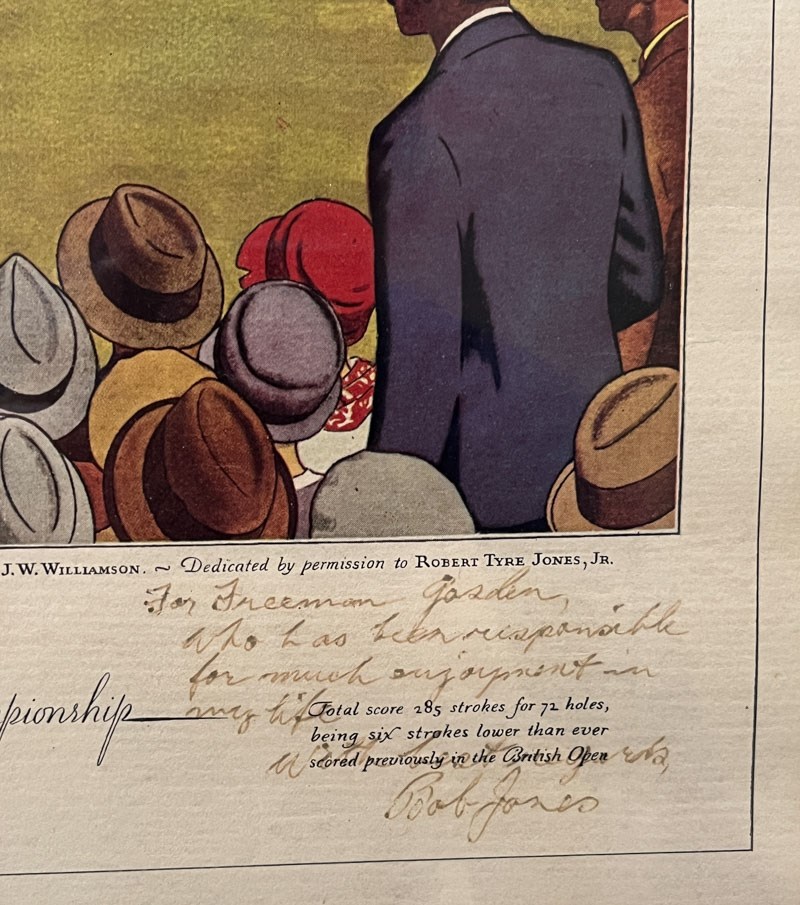 J. W. WILLIAMSON. ~ Dedicated by permission to ROBERT TYRE JONES, JR.
For Freeman Gosden,
who has been responsible
for much enjoyment in
my life
pionship
Total score 285 strokes for 72 holes,
being six strokes lower than ever
scored previously in the British Open
With best regards,
Bob Jones